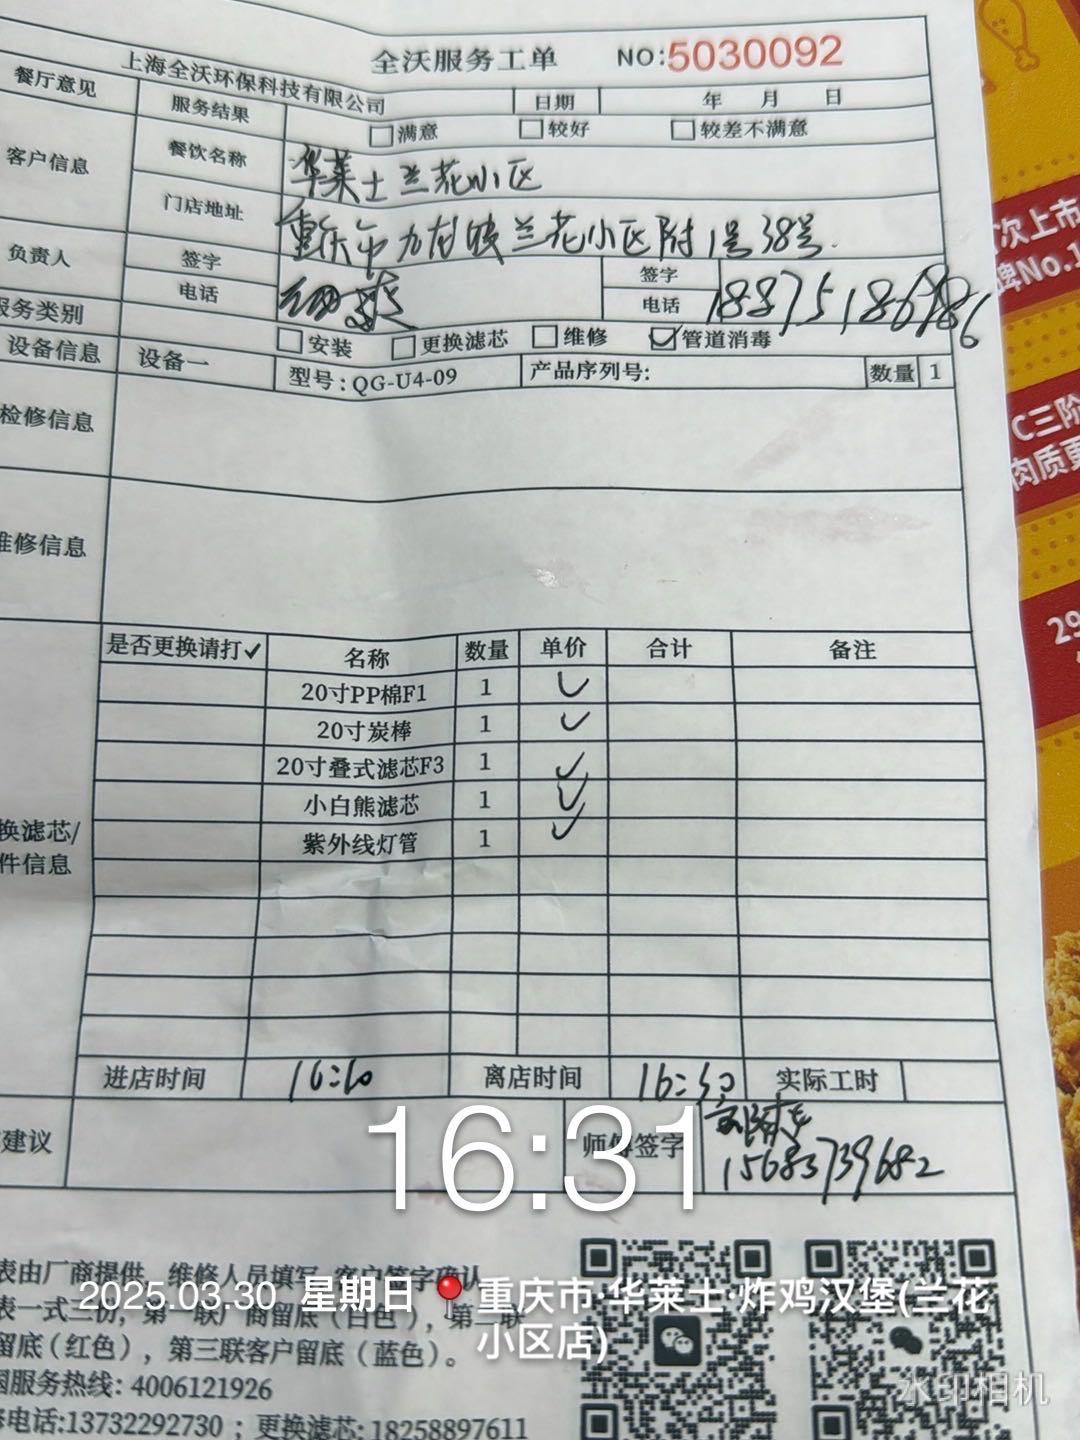 全沃服务工单 NO:5030092
上海全沃环保科技有限公司 日期 年 月 日
餐厅意见 服务结果 满意 较好 较差不满意
客户信息 餐饮名称 华莱士兰花小区
门店地址 重庆市九龙坡兰花小区附1号38号.
负责人 签字 签字
电话 电话
服务类别 安装 更换滤芯 维修 管道消毒
设备信息 设备一 型号:QG-U4-09 产品序列号: 数量 1
检修信息
维修信息
是否更换请打✓ 名称 数量 单价 合计 备注
20寸PP棉F1 1 ✓
20寸炭棒 1 ✓
20寸叠式滤芯F3 1 ✓
换滤芯/ 小白熊滤芯 1 ✓
件信息 紫外线灯管 1 ✓
进店时间 16:10 离店时间 16:30 实际工时
建议 师傅签字 15683739682
16:31
表由厂商提供, 维修人员填写, 客户签字确认
2025.03.30 星期日 重庆市·华莱士·炸鸡汉堡(兰花小区店)
表一式三份, 第一联厂商留底(白色), 第二联
留底(红色), 第三联客户留底(蓝色)。
国服务热线: 4006121926
电话:13732292730 ; 更换滤芯: 18258897611
水印相机
次上市
牌No.1
C三阶
肉质更
29